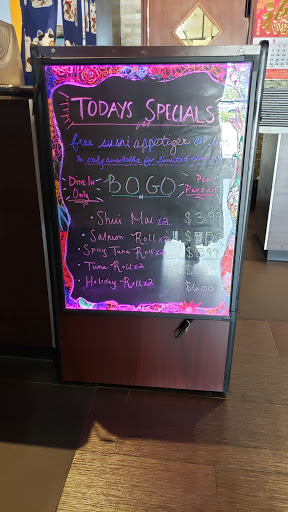 TODAYS SPECIALS
free sushi appetizer
only available for limited
Dine In Only
BOGO
Per Person
• Shui Mai x2 $3.99
• Salmon Roll x2 $
• Spicy Tuna Roll x2 $ .99
• Tuna Roll x2
• Holiday Roll x2 $6.00